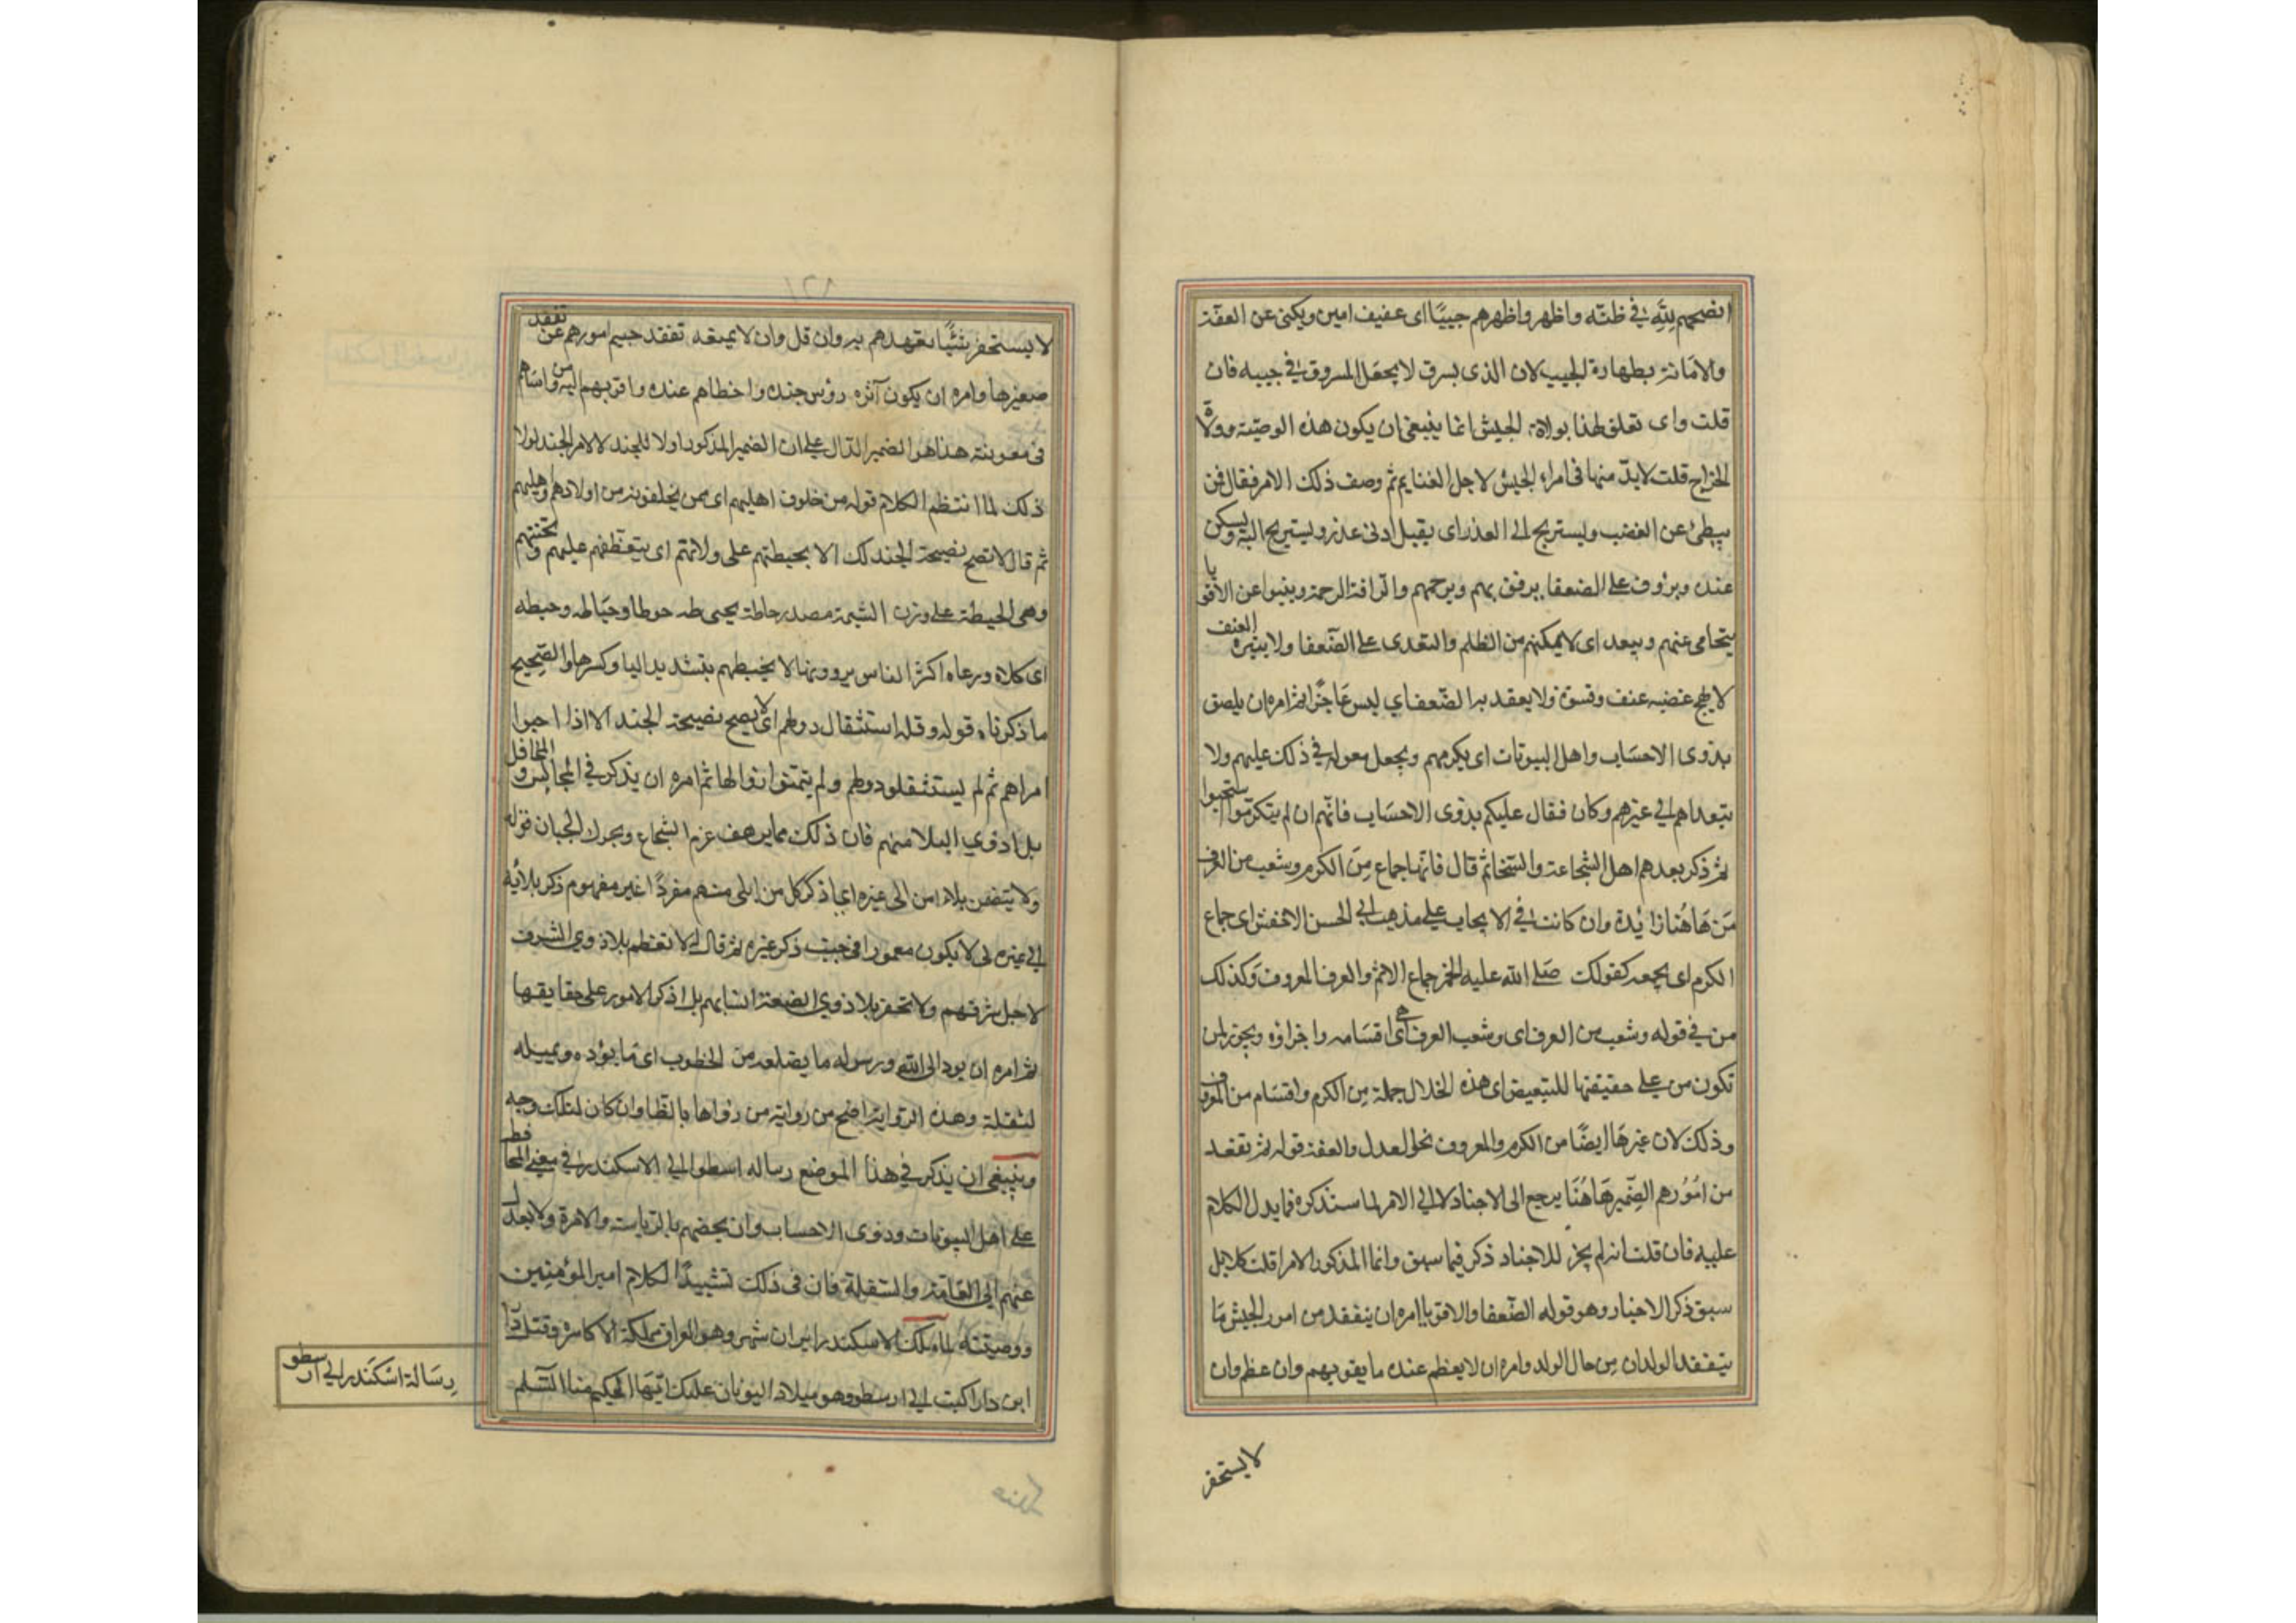 انصحهم لله في ظنه واظهر واظهرهم جيبًا اى عفيف امين ويكنى عن العفة
والامانة بطهارة الجيب لان الذى يسرق لا يجعل المسروق في جيبه فان
قلت واى تعلق لهذا بولاة الجيش انما ينبغى ان يكون هذه الوصية فى ولاة
الخراج قلت لابد منها فى امراء الجيش لاجل الغنايم ثم وصف ذلك الامر فقال فمن
يبطئ عن الغضب ويستريح الى العذر اى يقبل ادنى عذر ويستريح اليه ويسكن
عنده ويرؤف على الضعفا يرفق بهم ويرحمهم والرافة الرحمة وينبوا عن الاقويا
يتجافى عنهم ويبعد اى لا يمكنهم من الظلم والتعدى على الضعفا ولا يثيره العنف
لا يهيج غضبه عنف وقسوة ولا يقعد به الضعف اي ليس عاجزًا ثم امره ان يلصق
بذوى الاحساب واهل البيوتات اى يكرمهم ويجعل معوله في ذلك عليهم ولا
يتعداهم الى غيرهم وكان فقال عليكم بذوى الاحساب فانهم ان لم يتكرموا استحيوا
ثم ذكر بعدهم اهل الشجاعة والسخا ثم قال فانها جماع من الكرم وشعب من العرف
من هاهنا زايدة وان كانت في الايجاب على مذهب ابي الحسن الاخفش اى جماع
الكرم اى يجمعه كقولك صلى الله عليه الخمر جماع الاثم والعرف المعروف وكذلك
من في قوله وشعب من العرف اى وشعب العرف اى هى اقسامه واجزاؤه ويجوز ان
تكون من على حقيقتها للتبعيض اى هذه الخلال جملة من الكرم واقسام من المعروف
وذلك لان غيرها ايضًا من الكرم والمعروف نحو العدل والعفة قوله ثم تفقد
من امورهم الضمير هاهنا يرجع الى الاجناد لا الى الامر لما سنذكره مما يدل الكلام
عليه فان قلت انه لم يجز للاجناد ذكر فيما سبق وانما المذكور الامرا قلت كلا بل
سبق ذكر الاجناد وهو قوله الضعفا والاقويا امره ان يتفقد من امور الجيش ما
يتفقد الوالدان من حال الولد وامره ان لا يعظم عنده ما يقويهم وان عظم وان
لا يستحقر
لا يستحقر شيئًا تعهدهم به وان قل وان لا يمنعه تفقد جسيم امورهم عن تفقد
صغيرها وامره ان يكون آثره رؤس جنده واحظاهم عنده واقربهم اليه من واساهم
فى معونته هذا هو الضمير الدال على ان الضمير المذكور اولا للجند لا لامر الجند لولا
ذلك لما انتظم الكلام قوله من خلوف اهليهم اى ممن يخلفونه من اولادهم واهليهم
ثم قال لا تصح نصيحة الجند لك الا بحيطتهم على ولاتهم اى بتعطفهم عليهم وتحننهم
وهى الحيطة على وزن الشيمة مصدر حاطه يحيطه حوطا وحياطه وحيطه
اى كلاه ورعاه اكثر الناس يروونها الا بحيطهم بتشديد اليا وكسرها والصحيح
ما ذكرناه قوله وقلة استثقال دولهم اى لا يصح نصيحة الجند الا اذا احبوا
امراهم ثم لم يستثقلوا دولهم ولم يتمنوا زوالها ثم امره ان يذكر في المجالس والمحافل
بلاد ذوي البلا منهم فان ذلك مما يرهف عزم الشجاع ويحرك الجبان قوله
ولا تضمن بلاء امرئ الى غيره اى اذكر كل من ابلى منهم مفردًا غير مضموم ذكر بلائه
الى غيره لى لا يكون مغمورا فى جنب ذكر غيره ثم قال له لا تعظم بلا ذوي الشرف
لاجل شرفهم ولا تحقر بلا ذوي الضعة لضعة انسابهم بل اذكر الامور على حقايقها
ثم امره ان يرد الى الله ورسوله ما يضلعه من الخطوب اى ما يؤده ويميله
لثقله وهذه الرواية اصح من رواية من رواها بالظا وان كان لتلك وجه
وينبغى ان يذكر في هذا الموضع رساله ارسطو الى الاسكندر في معنى المحافظه
على اهل البيوتات وذوى الاحساب وان يخصهم بالرياسة والامرة ولا يعدل
عنهم الى العامة والسفلة فان فى ذلك تشييدًا لكلام امير المؤمنين
ووصيته لما ملك الاسكندر ايران شهر وهو العراق مملكة الاكاسرة وقتل دارا
ابن دارا كتب الى ارسطو وهو ببلاد اليونان عليك ايها الحكيم منا السلم
رسالة اسكندر الى ارسطو